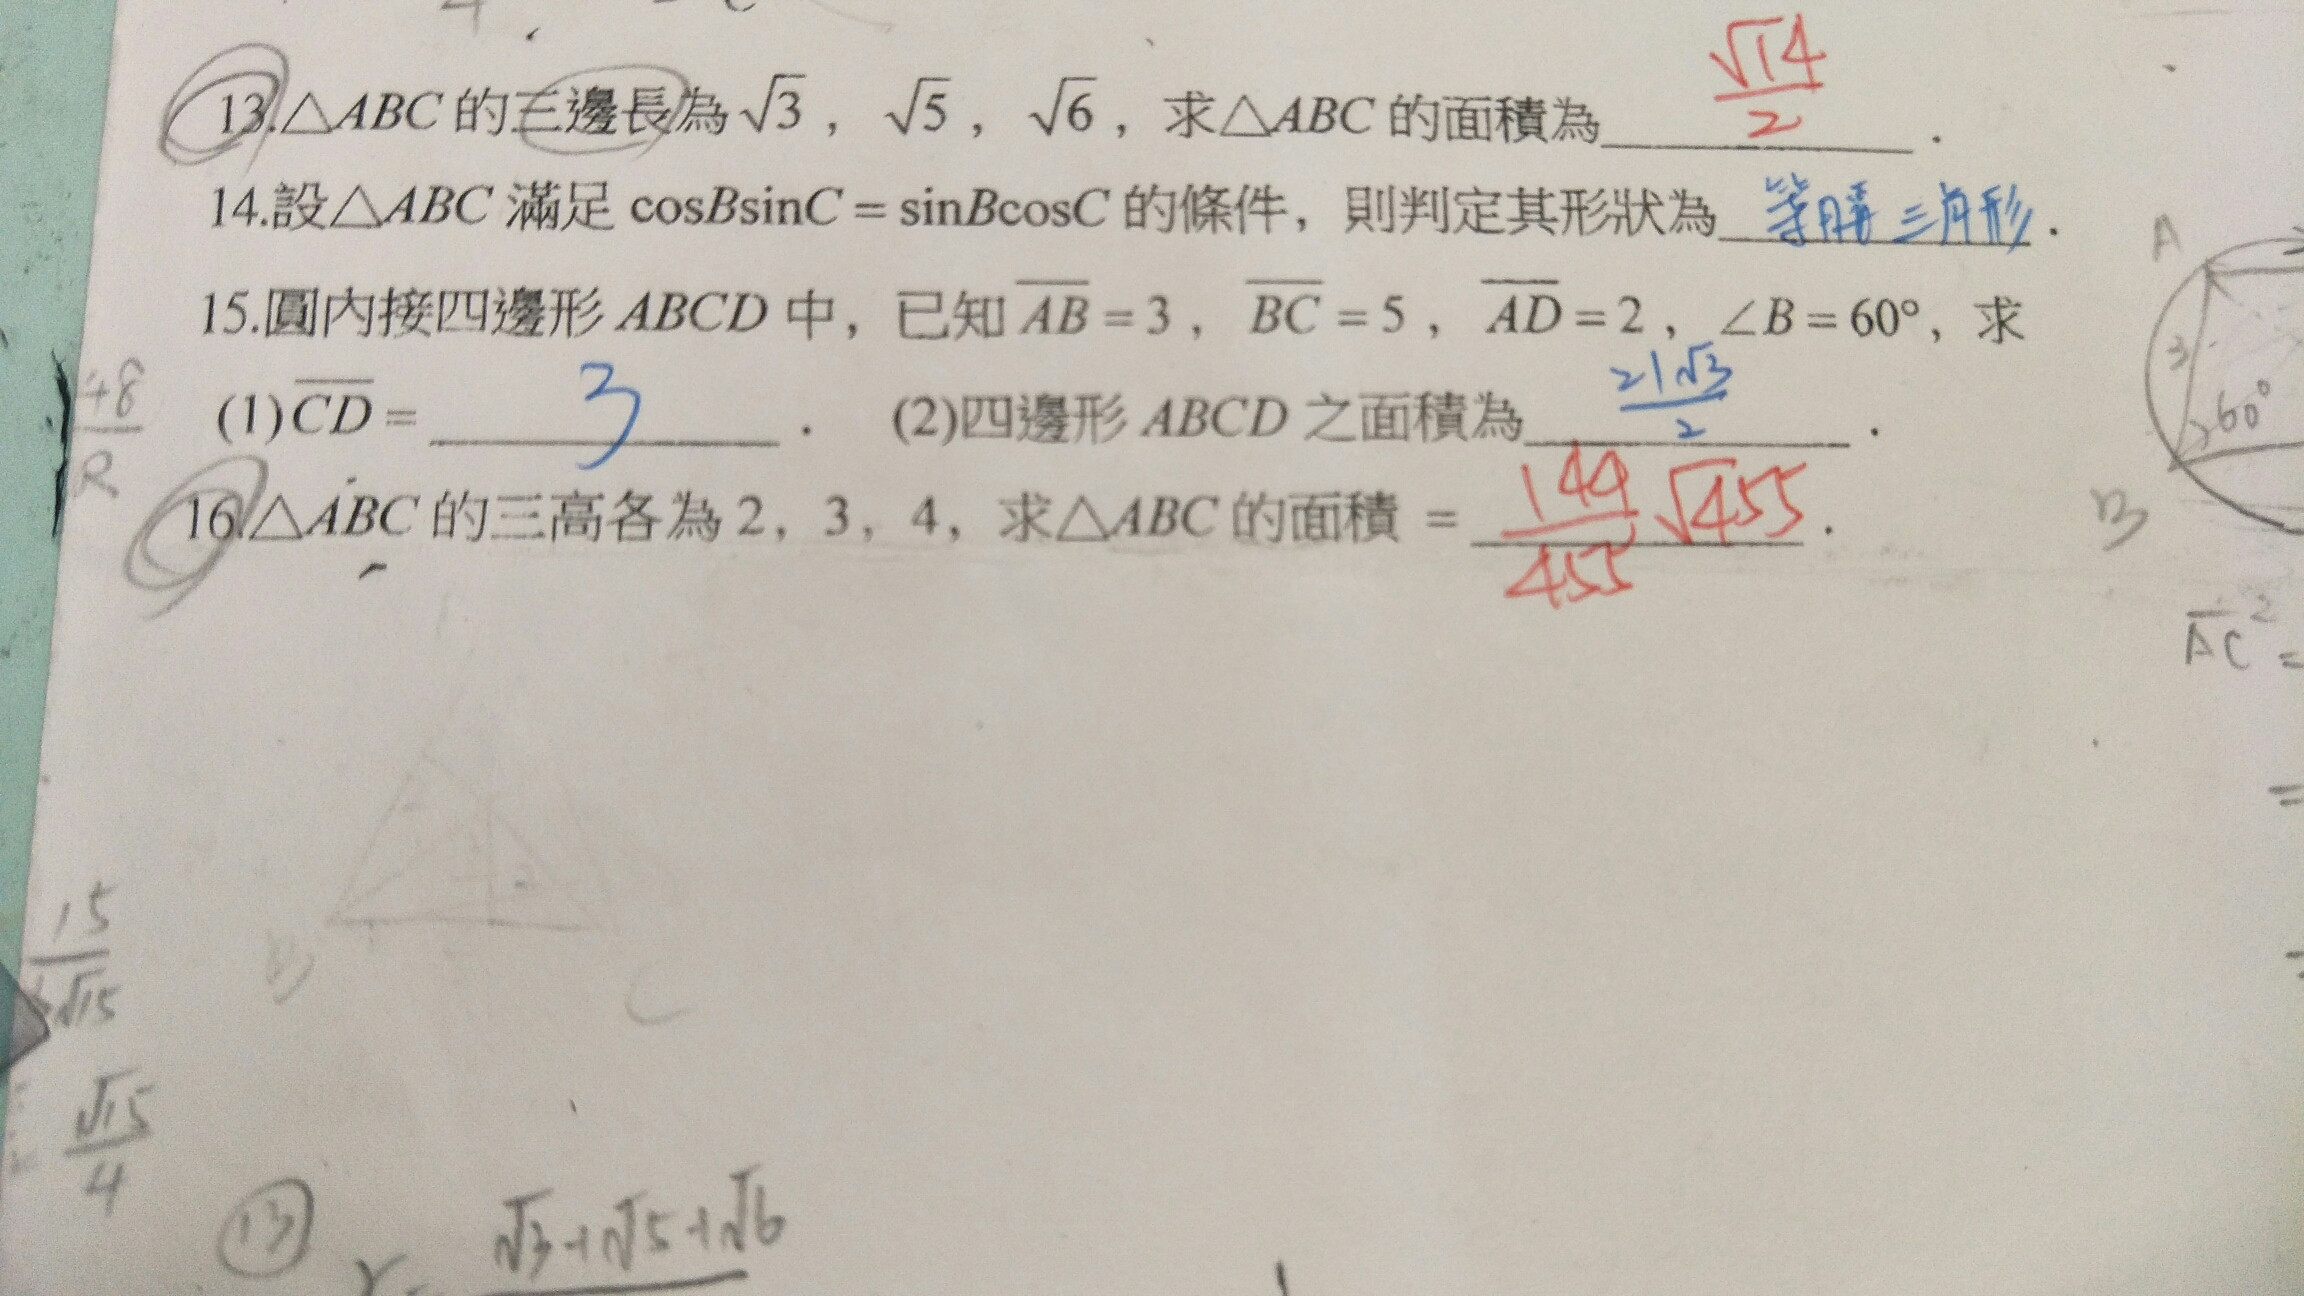 13.△ABC 的三邊長為√3，√5，√6，求△ABC 的面積為 √14/2 .
14.設△ABC 滿足 cosBsinC = sinBcosC 的條件，則判定其形狀為 等腰三角形 .
15.圓內接四邊形 ABCD 中，已知 AB = 3，BC = 5，AD = 2，∠B = 60°，求
(1)CD = 3 . (2)四邊形 ABCD 之面積為 21√3/2 .
16.△ABC 的三高各為 2，3，4，求△ABC 的面積 = 144/455 √455 .
A
3
60°
B
AC² =
=
+8
R
B
C
15
√15
√15/4
⑬
√3+√5+√6